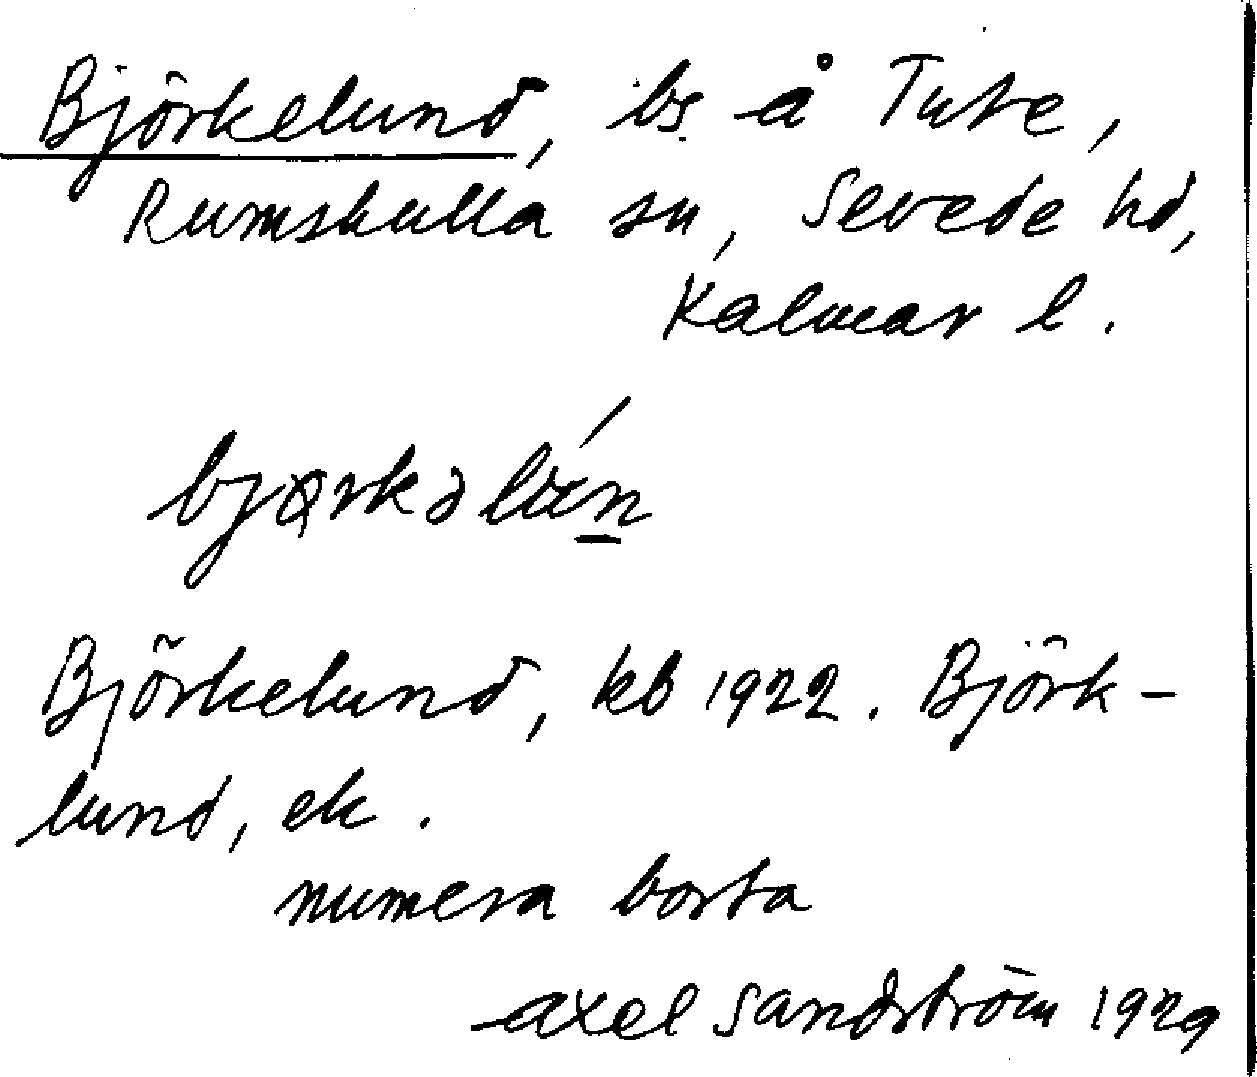 Björkelund, bs å Tute,
Rumskulla sn, Sevede hd,
Kalmar l.
Björkelund, kb 1922. Björk-
lund, ek.
numera borta
Axel Sandström 1929